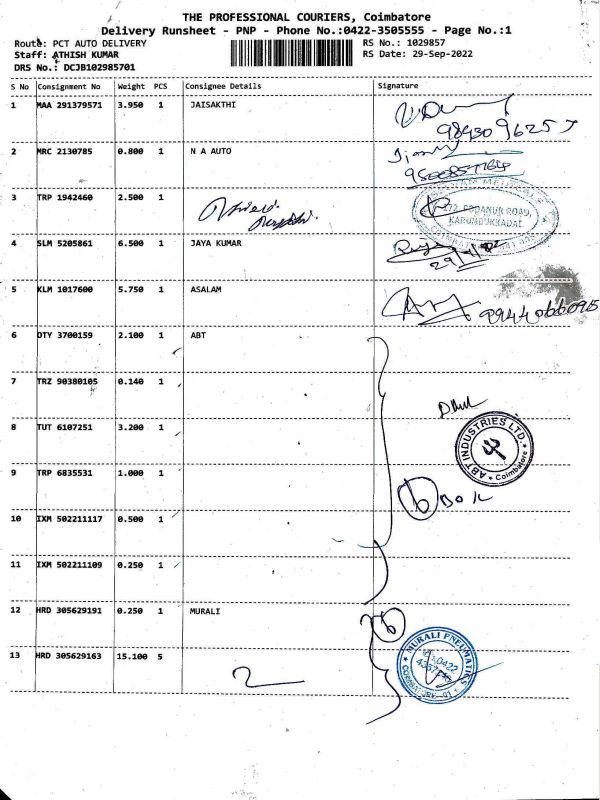 THE PROFESSIONAL COURIERS, Coimbatore
Delivery Runsheet - PNP - Phone No.:0422-3505555 - Page No.:1
Route: PCT AUTO DELIVERY RS No.: 1029857
Staff: ATHISH KUMAR RS Date: 29-Sep-2022
DRS No.: DCJB102985701
S No Consignment No Weight PCS Consignee Details Signature
1 MAA 291379571 3.950 1 JAISAKTHI
2 MRC 2130785 0.800 1 N A AUTO
3 TRP 1942460 2.500 1
PODANUR ROAD,
4 SLM 5205861 6.500 1 JAYA KUMAR
5 KLM 1017600 5.750 1 ASALAM
6 DTY 3700159 2.100 1 ABT
7 TRZ 90380105 0.140 1
8 TUT 6107251 3.200 1
ABT INDUSTRIES LTD. Coimbatore
9 TRP 6835531 1.000 1
6 Box
10 IXM 502211117 0.500 1
11 IXM 502211109 0.250 1
12 HRD 305629191 0.250 1 MURALI
6
13 HRD 305629163 15.100 5
MURALI PNEUMATICS
2